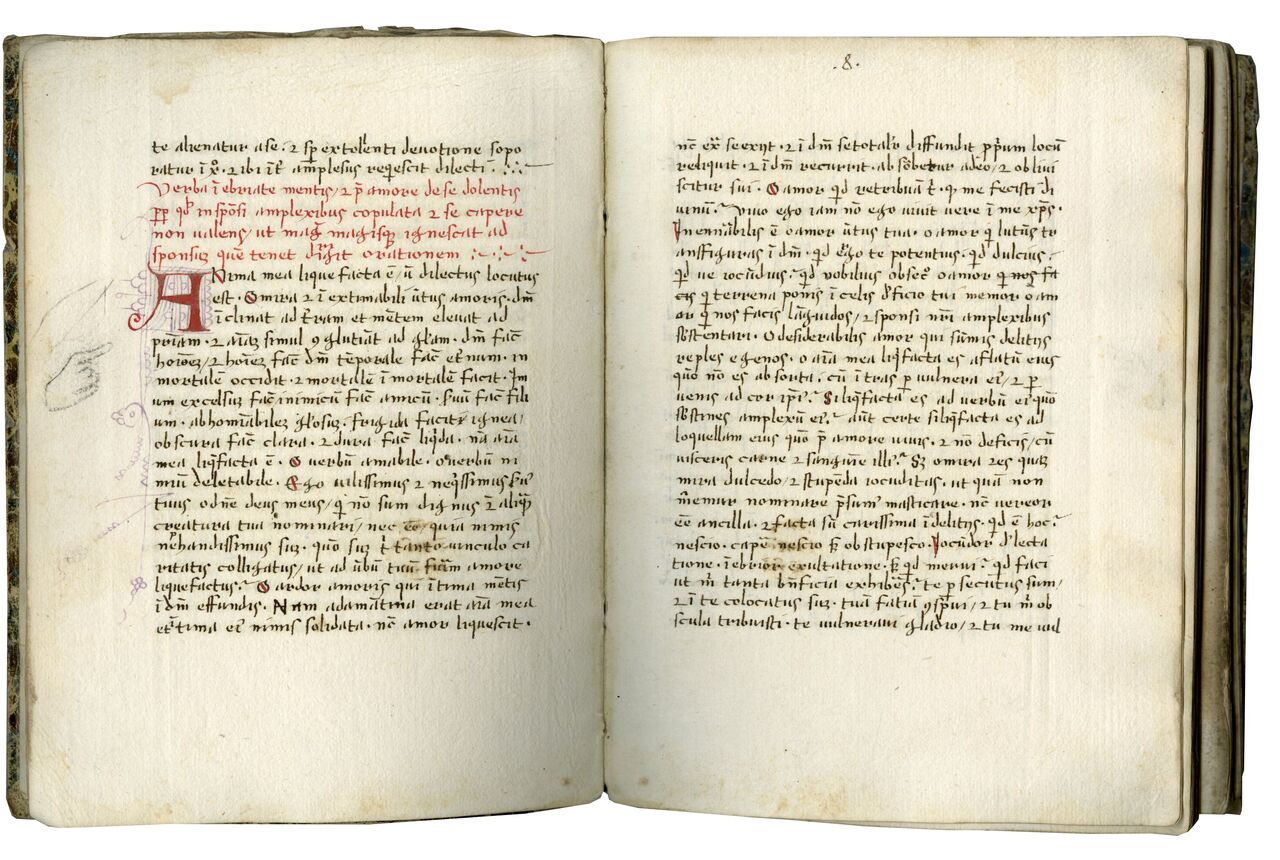 te alienatur a se · ⁊ sp extolẽti devotione sopo
ratur ĩ xº · ⁊ ibi ĩt amplexus reqescit dilecti
Verba ĩebriate mentis / ⁊ p̃ amore de se dolentis
qd in sponsi amplexibus copulata ⁊ se capere
non valens / ut mag̃ magisq ignescat ad
sponsuʒ quẽ tenet dirigit orationem
ANima mea lique facta ẽ / ũ dilectus locutus
est · O mira ⁊ ĩextimabili ũtus amoris · dm̃
ĩclinat ad t̃ram et mẽtem elevat ad
pr̃iam · ⁊ ar̃aʒ simul ꝯglutiat ad gl̃am · dm̃ fac̃
hoĩeʒ / ⁊ hoĩeʒ fac̃ dm̃ tẽporale fac̃ et̃num · in
mortalẽ occidit · ⁊ mortalẽ ĩmortalẽ facit · Im
um excelsuʒ fac̃ inimicũ fac̃ amicũ · suũ fac̃ fili
um · abhomĩabileʒ gl̃osuʒ · frigida facit ignea /
obscura fac̃ clara · ⁊ dura fac̃ liq̃da · nã aĩa
mea liq̃facta ẽ · O verbũ amabile · o verbũ ni
miũ delectabile · Ego vilissimus ⁊ neq̃ssimus
tuus odñe deus meus / qi nõ sum dignus ĩ aliq̃
creatura tua nominari / nec eo / quia nimis
nephandissimus suʒ · quõ suʒ tanto vinculo ca
ritatis colligatus / ut ad v̂bũ tuũ amore
liquefactus? O ardor amoris qui ĩtima mẽtis
ĩ dm̃ effundis · Nam adamãtina erat aĩa mea
et nimis solidata · nc̃ amor liquescit ·
·8·
nc̃ ex̃ se exijt · ⁊ ĩ dm̃ se totalr̃ diffundit pprium locũ
reliquit · ⁊ ĩ dm̃ recurrit · absorbetur adeo / ⁊ oblivi
scitur sui · O amor qd retribuã t̃ · q me fecisti di
vinũ · Vivo ego iam nõ ego vivit vere ĩ me xp̃s ·
Inenar̃abilis ẽ o amor ũtus tua · o amor q lutũ tr
ansfiguras ĩ dm̃ · qd g̃o te potentius · qd dulcius ?
qd ve iocũdius ? qd nobilius obsec̃ o amor q nos fa
cis q terrena ponis ĩ celis officio tui memor o am
or q nos facis lãguidos / ⁊ sponsi nr̃i amplexibus
sustentari · O desiderabilis amor qui sũmis delitijs
reples egenos · o aĩa mea liq̃facta es afflatũ eius
quõ nõ es absorta · cũ ĩtras p vulnera ei / ⁊ p
venis ad cor ipi ? Si liq̃facta es ad verbũ ei quõ
sustines amplexũ ei ? aut certe si liq̃facta es ad
loquellam eius quõ p̃ amore vivis · ⁊ nõ deficis / cũ
visceris carne ⁊ sanguine illi ? Sʒ o mira res quaʒ
mira dulcedo / ⁊ stupẽda iocũditas · ut quã non
meremur nominare p̃sum masticare · nc̃ vereor
ẽe ancilla · ⁊ facta sũ carissima ĩ delitijs · qd ẽ hoc ?
nescio · nescio sʒ obstupesco · Iocũdor delecta
tione · ĩebrior exultatione · sʒ qd merui ? qd feci
ut m̃ tanta bñficia exhibẽs ? te p secutus sum /
⁊ ĩ te colocatus suʒ · tuã faciẽ ꝯspui / ⁊ tu m̃ ob
scula tribuisti · te vulneravi gladio / ⁊ tu me vul